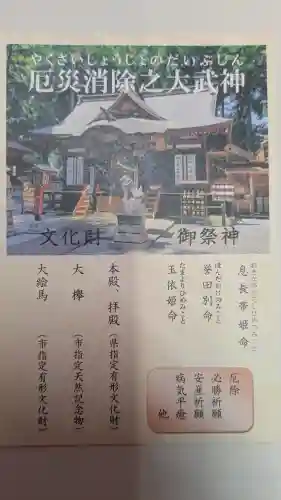 やくさいしょうじょのだいぶしん
厄災消除之大武神
御祭神
息長帯姫命
ほんだわけのみこと
誉田別命
たまよりひめのみこと
玉依姫命
厄除
必勝祈願
安産祈願
病気平癒
他
文化財
本殿、拝殿(県指定有形文化財)
大欅(市指定天然記念物)
大絵馬(市指定有形文化財)